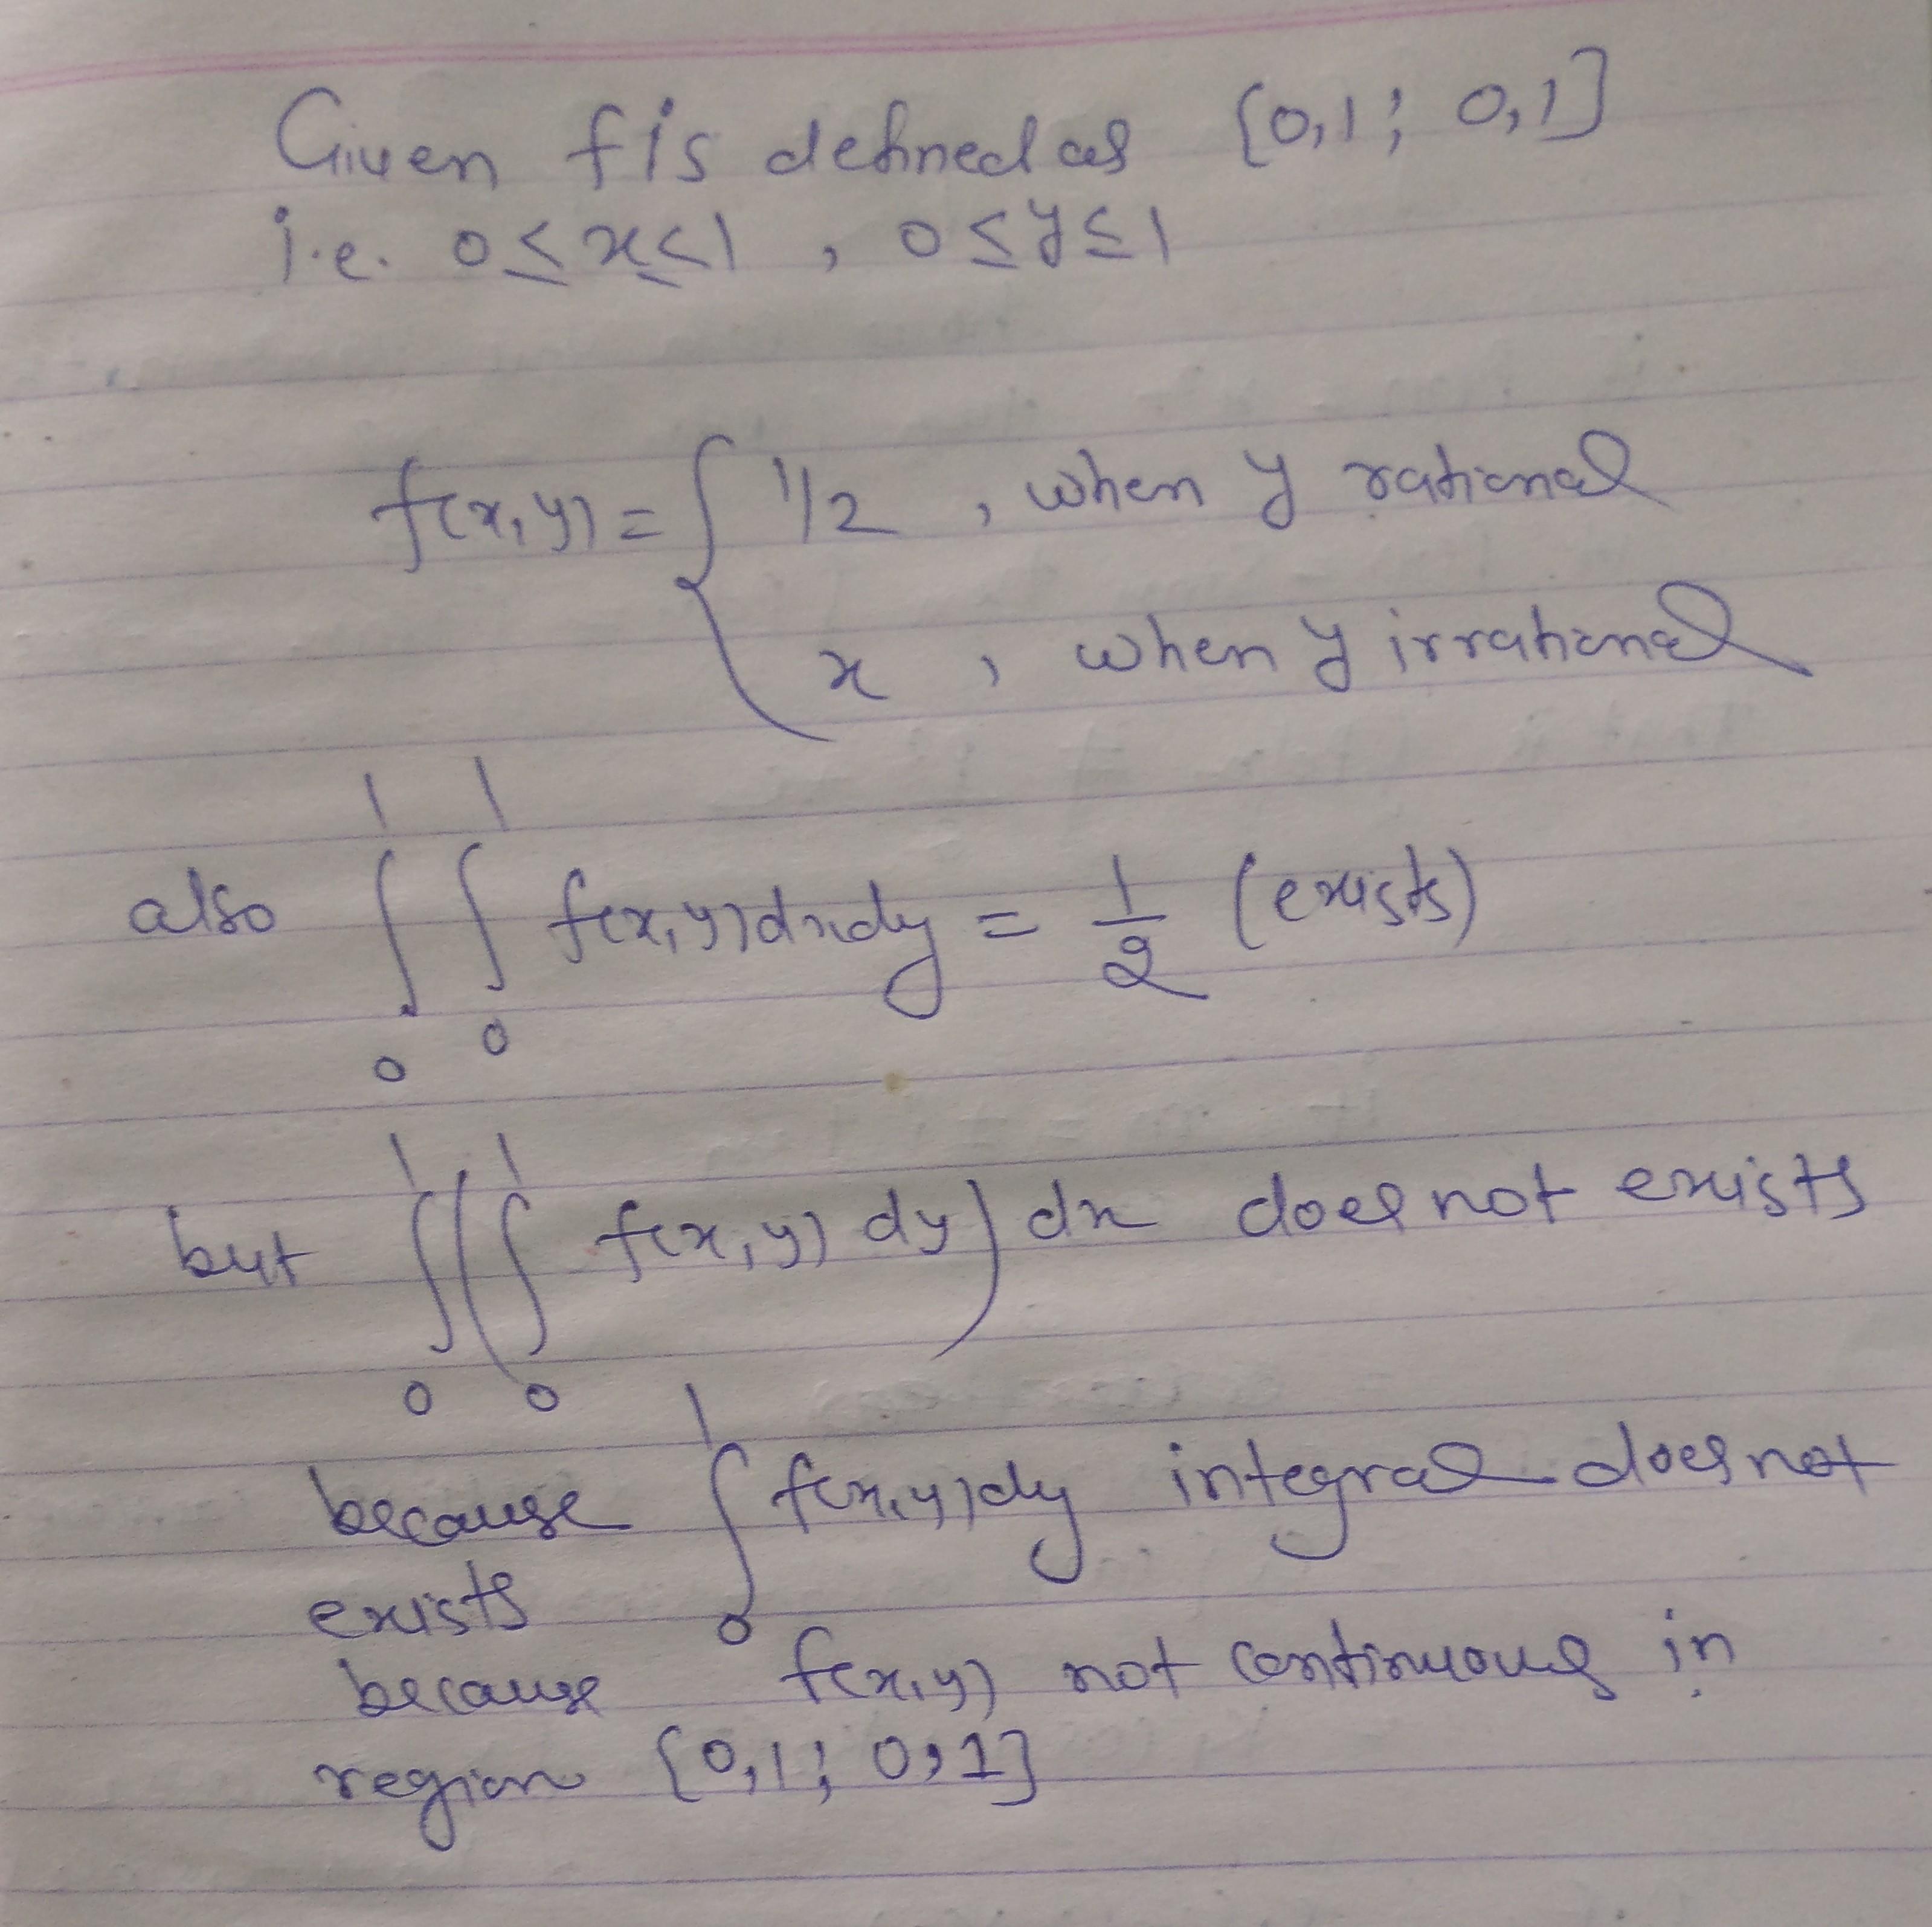 Given f is defined as [0,1; 0,1]
i.e. 0≤x≤1 , 0≤y≤1
f(x,y) = { 1/2 , when y rational
x , when y irrational
also ∫₀¹ ∫₀¹ f(x,y)dxdy = 1/2 (exists)
but ∫₀¹ (∫₀¹ f(x,y) dy) dx does not exists
because ∫₀¹ f(x,y)dy integral does not
exists
because f(x,y) not continuous in
region [0,1; 0,1]